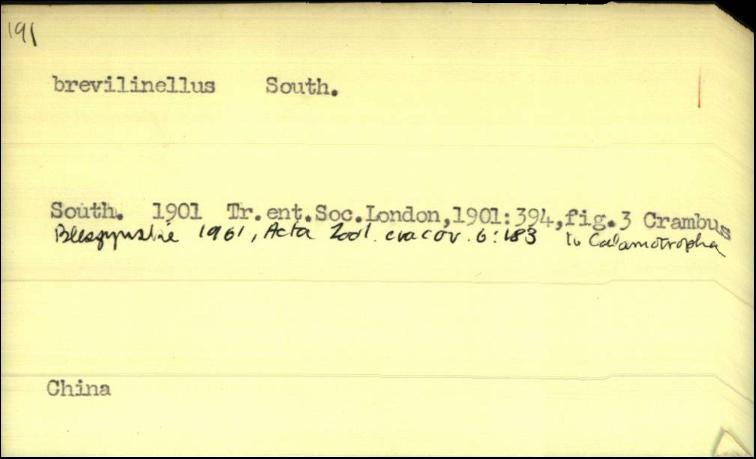 191
brevilinellus South.
South. 1901 Tr.ent.Soc.London,1901:394,fig.3 Crambus
Bleszynski 1961, Acta Zool. cracov. 6:183 to Calamotropha
China